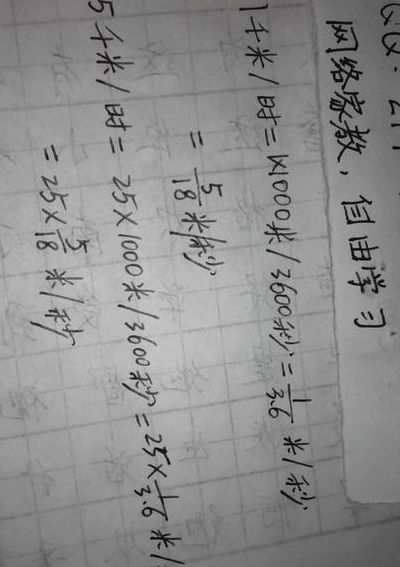 网络家教，自由学习
1千米/时=1×1000米/3600秒=1/3.6 米/秒
=5/18 米/秒
5千米/时=25×1000米/3600秒=25×1/3.6 米/
=25×5/18 米/秒